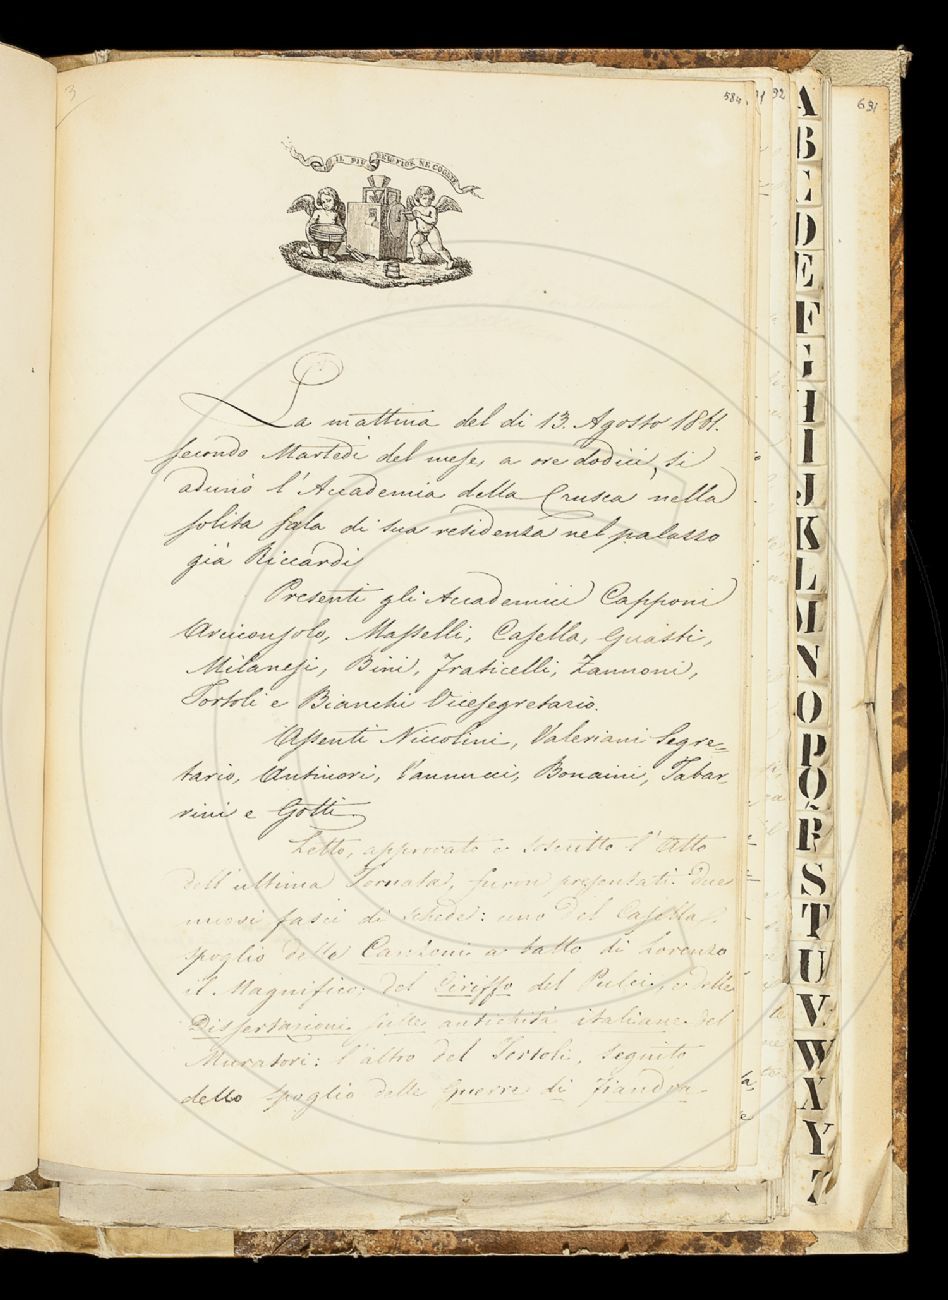 3
584.
92
691
IL PIÙ BEL FIOR NE COGLIE
La mattina del dì 13. Agosto 1861.
secondo Martedì del mese, a ore dodici, si
adunò l'Accademia della Crusca nella
solita sala di sua residenza nel palazzo
già Riccardi
Presenti gli Accademici Capponi
Arciconsolo, Masselli, Casella, Guasti,
Milanesi, Bini, Fraticelli, Zannoni,
Tortoli e Bianchi Vicesegretario.
Assenti Niccolini, Valeriani Segre-
tario, Antinori, Vannucci, Bonaini, Tabar-
rini e Gotti.
Letto, approvato e soscritto l'Atto
dell'ultima Tornata, furon presentati due
nuovi fasci di schede: uno del Casella,
spoglio delle Canzoni a ballo di Lorenzo
il Magnifico, del Ciriffo del Pulci, e delle
Dissertazioni sulle antichità italiane del
Muratori: l'altro del Tortoli, seguito
dello spoglio delle Guerre di Fiandra
A
B
C
D
E
F
G
H
I
J
K
L
M
N
O
P
Q
R
S
T
U
V
W
X
Y
Z